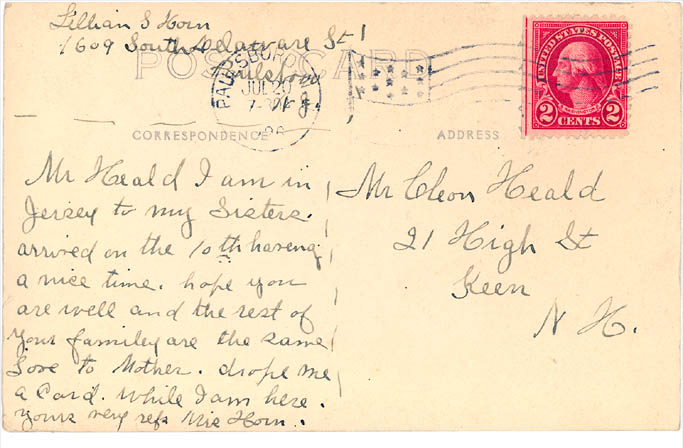 Lillian S Horn
1609 South Delaware St
Paulsboro
N. J.
POST CARD
PAULSBORO
JUL 20
7-
UNITED STATES POSTAGE
WASHINGTON
2 CENTS 2
CORRESPONDENCE
ADDRESS
Mr Heald I am in
Jersey to my Sisters.
arrived on the 10th haveng
a nice time. hope you
are well and the rest of
your familey are the same
Love to Mother. drope me
a Card. while I am here.
yours very resp Mrs Horn..
Mr Cleon Heald
21 High St
Keen
N H.